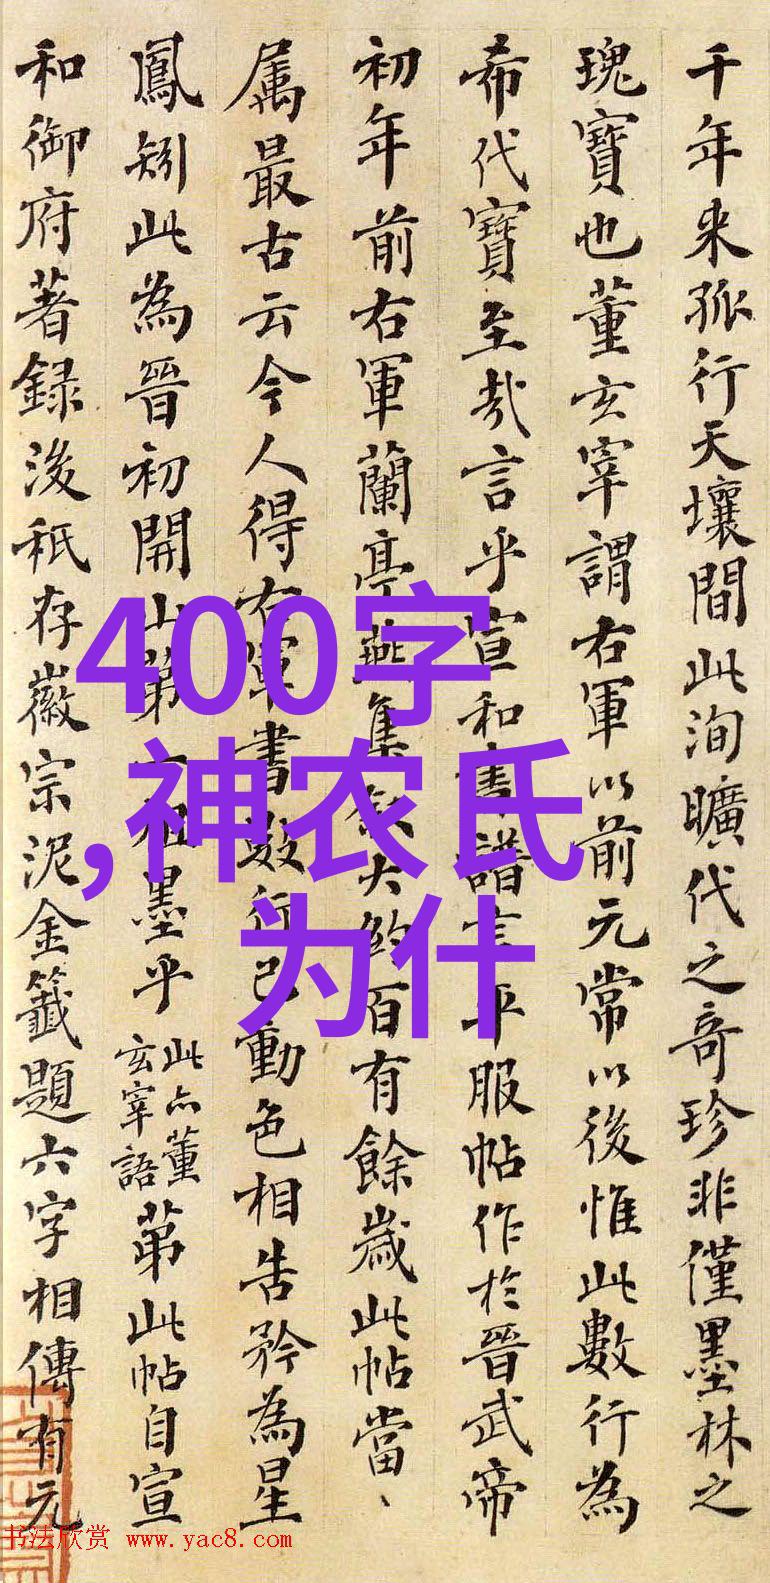 千年来孤行天壤間此洵曠代之奇珍非僅墨林之
瑰寶也董玄宰謂右軍以前元常以後惟此數行為
希代寶至哉言乎宣和書譜言平服帖作於晉武帝
初年前右軍蘭亭燕集叙大約百有餘歲此帖當、
属最古云今人得右軍書數行已動色相告矜為星
鳳矧此為晉初開山第一祖墨乎此亦董玄宰語第此帖自宣
和御府著録後秖存徽宗泥金籖題六字相傳有元
400字
,神农氏
为什
书法欣赏 www.yac8.com